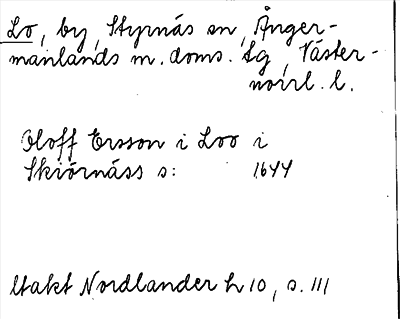 Lo, by, Styrnäs sn, Ånger-
manlands m. doms. sg, Väster-
norrl. l.
Oloff Ersson i Loo i
Skiörnäss s: 1644
Utakt Nordlander h 10, s. 111